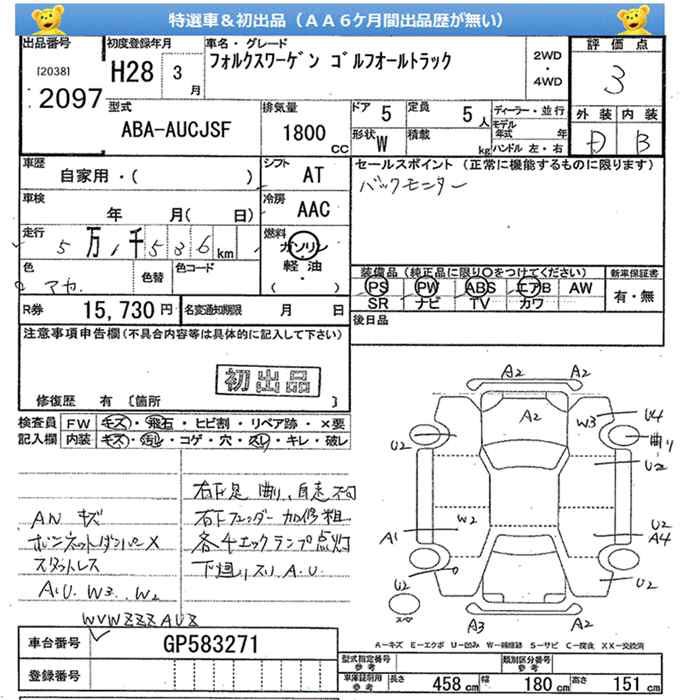 特選車＆初出品（ＡＡ６ケ月間出品歴が無い）
出品番号
[2038]
2097
初度登録年月
H28 3
月
車名・グレード
フォルクスワーゲン ゴルフオールトラック
2WD
・
4WD
評価点
3
外装 内装
D B
型式
ABA-AUCJSF
排気量
1800
CC
ドア 5
定員 5
人
形状 W
積載
kg
ディーラー・並行
モデル
年式 年
ハンドル 左・右
車歴
自家用・( )
シフト
AT
車検
年 月( 日)
冷房
AAC
走行
5 万 1 千 5 3 6 km
燃料
ガソリン
軽油
( )
色
アカ
色替
色コード
R券 15,730 円
名変通知期限 月 日
セールスポイント（正常に機能するものに限ります）
バックモニター
装備品（純正品に限り○をつけてください）
新車保証書
PS PW ABS エアB AW
SR ナビ TV カワ
有・無
後日品
注意事項申告欄(不具合内容等は具体的に記入して下さい)
初出品
修復歴 有 〔箇所 〕
検査員 FW キズ・飛石・ヒビ割・リペア跡・×要
記入欄 内装 キズ・汚レ・コゲ・穴・スレ・キレ・破レ
右下足 曲り、自走不可
AN キズ
右下フェンダー加修粗
ボンネットダンパーX
各4エックランプ点灯
スタットレス
下廻りスリ A.U
A.U W3 W2
WVWZZZAUZ
A2 A2
A2
W3 U4
曲り
U2 U2
W2 U2
A1 A4
U2 U2
スペア
A3 A2
A－キズ E－エクボ U－凹み W－補修跡 S－サビ C－腐食 XX－交換済
車台番号 GP583271
登録番号
型式指定番号
参考
類別区分番号
参考
車庫証明用
参考
長さ 458 cm 幅 180 cm 高さ 151 cm